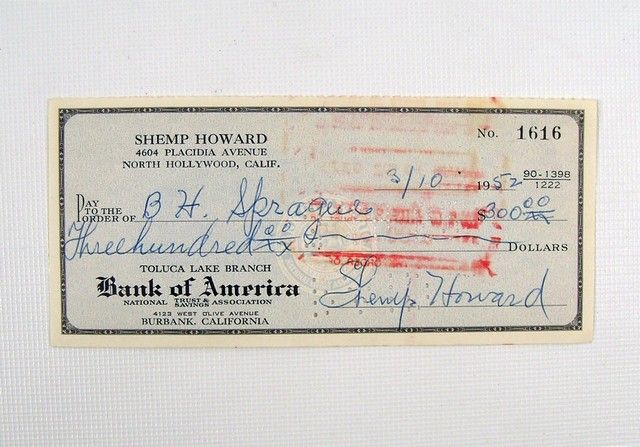 SHEMP HOWARD
4604 PLACIDIA AVENUE
NORTH HOLLYWOOD, CALIF.
No. 1616
3/10 1952
90-1398
1222
PAY TO THE ORDER OF B H. Sprague $300 00/xx
Threehundred 00/xx DOLLARS
TOLUCA LAKE BRANCH
Bank of America
NATIONAL TRUST & SAVINGS ASSOCIATION
4123 WEST OLIVE AVENUE
BURBANK, CALIFORNIA
Shemp Howard